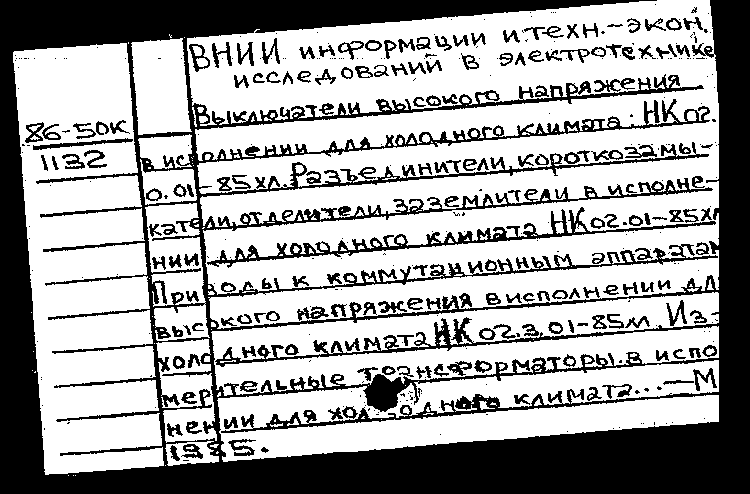 ВНИИ информации и техн.-экон.
исследований в электротехнике
86-50К
Выключатели высокого напряжения
1132
в исполнении для холодного климата: НК 02.
0.01-85хл. Разъединители, короткозамы-
катели, отделители, заземлители в исполне-
нии для холодного климата НК 02.01-85хл
Приводы к коммутационным аппаратам
высокого напряжения в исполнении для
холодного климата НК 02.3.01-85хл. Из-
мерительные трансформаторы в испо
нении для холодного климата...-М
1985.